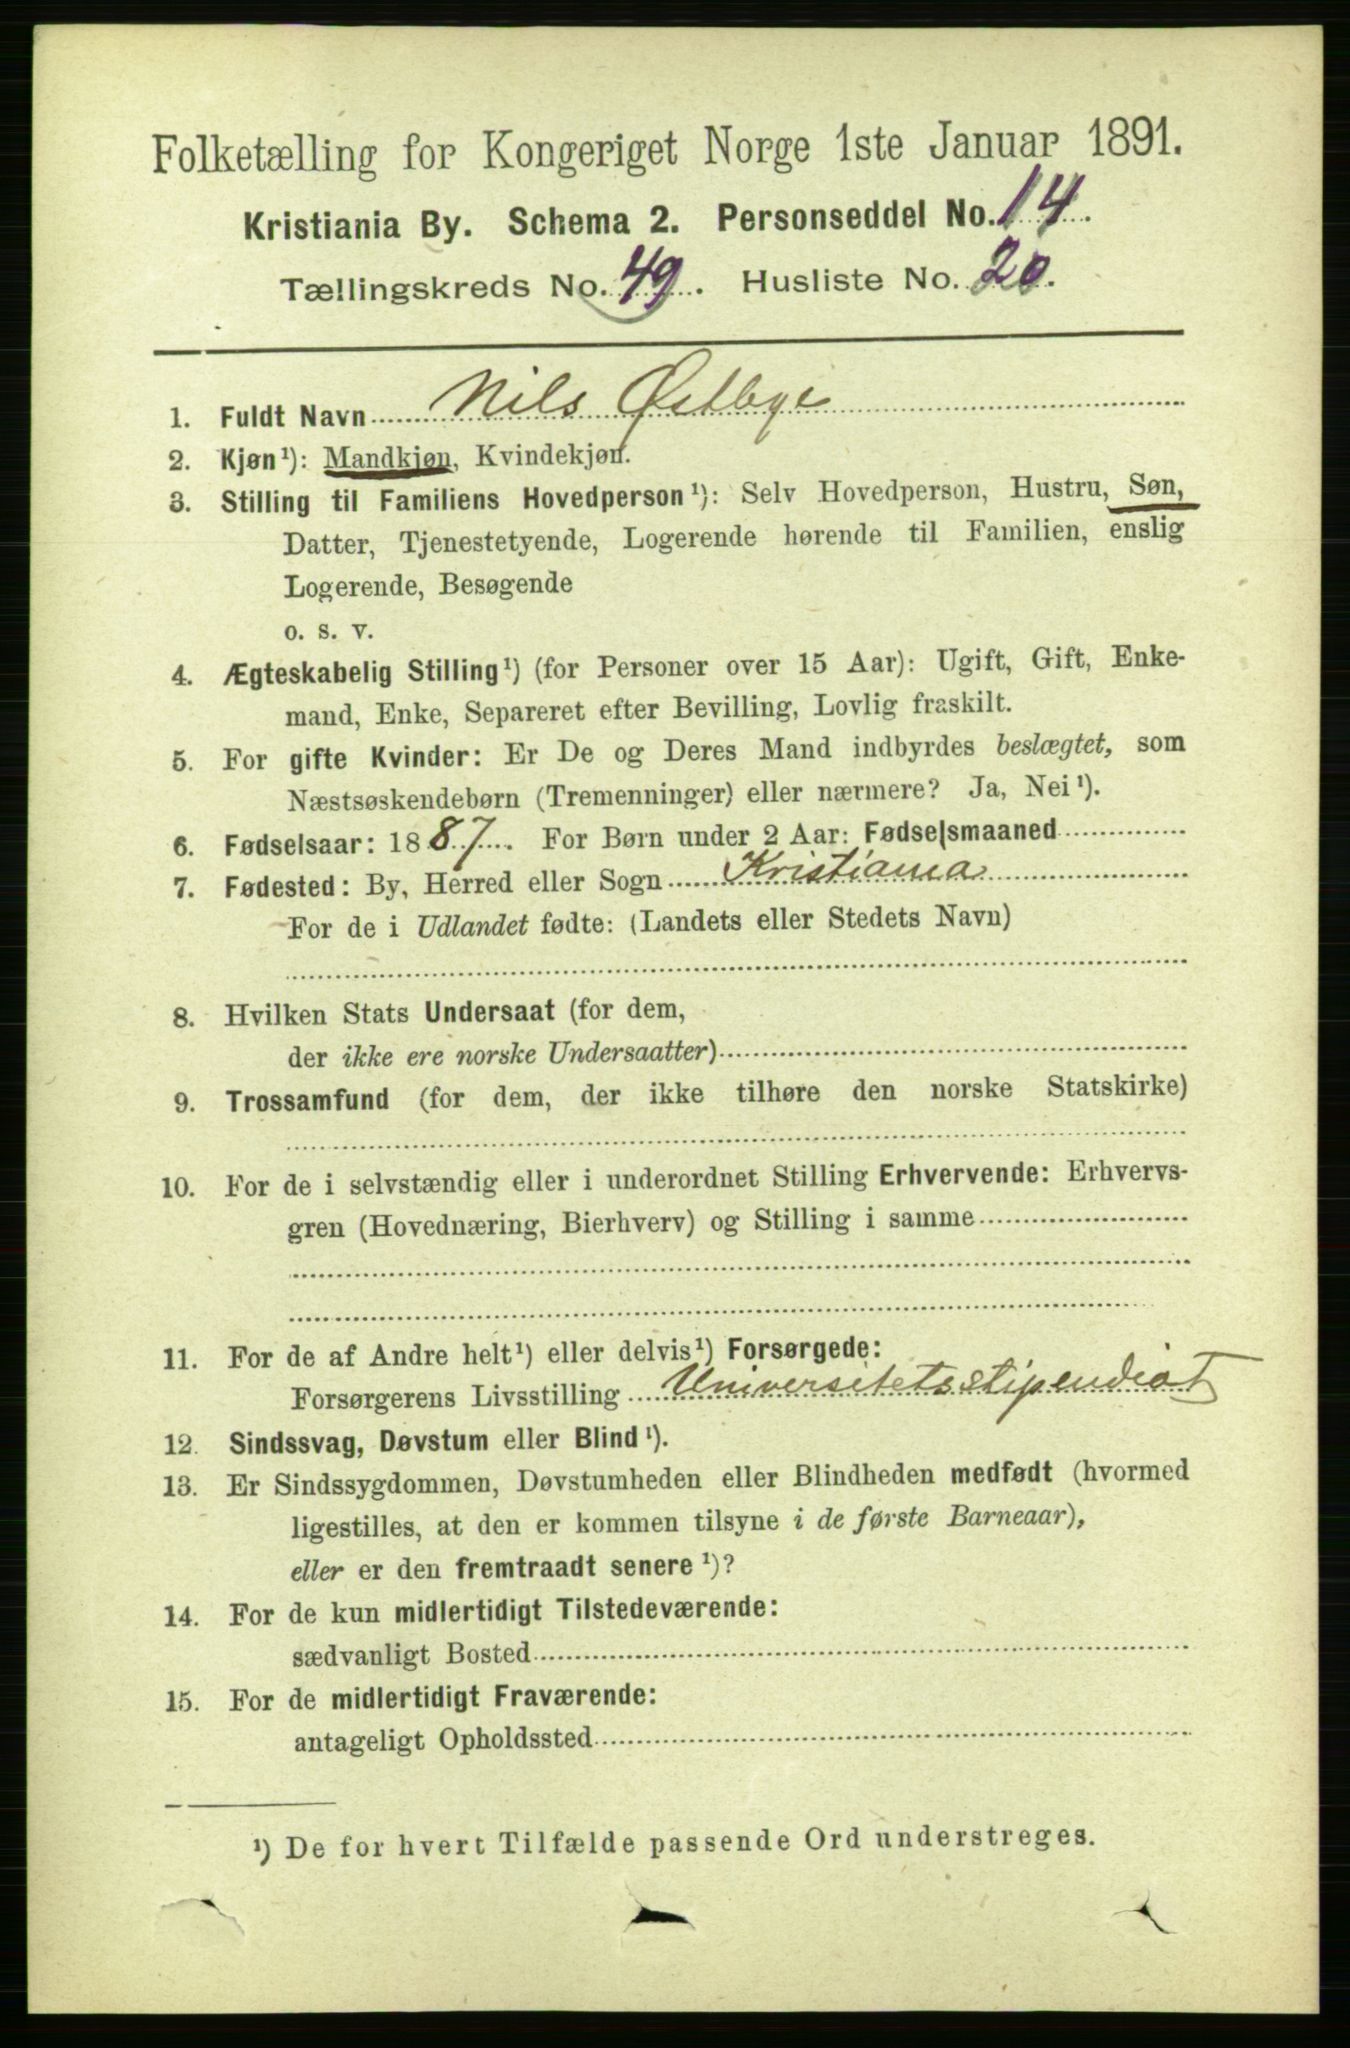 Folketælling for Kongeriget Norge 1ste Januar 1891.
Kristiania By. Schema 2. Personseddel No. 14.
Tællingskreds No. 49. Husliste No. 20.
1. Fuldt Navn Nils Østbye
2. Kjøn¹): Mandkjøn, Kvindekjøn.
3. Stilling til Familiens Hovedperson¹): Selv Hovedperson, Hustru, Søn,
Datter, Tjenestetyende, Logerende hørende til Familien, enslig
Logerende, Besøgende
o. s. v.
4. Ægteskabelig Stilling¹) (for Personer over 15 Aar): Ugift, Gift, Enke-
mand, Enke, Separeret efter Bevilling, Lovlig fraskilt.
5. For gifte Kvinder: Er De og Deres Mand indbyrdes beslægtet, som
Næstsøskendebørn (Tremenninger) eller nærmere? Ja, Nei¹).
6. Fødselsaar: 1887. For Børn under 2 Aar: Fødselsmaaned
7. Fødested: By, Herred eller Sogn Kristiania
For de i Udlandet fødte: (Landets eller Stedets Navn)
8. Hvilken Stats Undersaat (for dem,
der ikke ere norske Undersaatter)
9. Trossamfund (for dem, der ikke tilhøre den norske Statskirke)
10. For de i selvstændig eller i underordnet Stilling Erhvervende: Erhvervs-
gren (Hovednæring, Bierhverv) og Stilling i samme
11. For de af Andre helt¹) eller delvis¹) Forsørgede:
Forsørgerens Livsstilling Universitetsstipendiat
12. Sindssvag, Døvstum eller Blind¹).
13. Er Sindssygdommen, Døvstumheden eller Blindheden medfødt (hvormed
ligestilles, at den er kommen tilsyne i de første Barneaar),
eller er den fremtraadt senere¹)?
14. For de kun midlertidigt Tilstedeværende:
sædvanligt Bosted
15. For de midlertidigt Fraværende:
antageligt Opholdssted
¹) De for hvert Tilfælde passende Ord understreges.